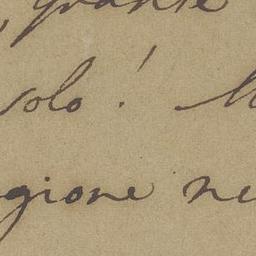 , quante
solo! M
gione ne